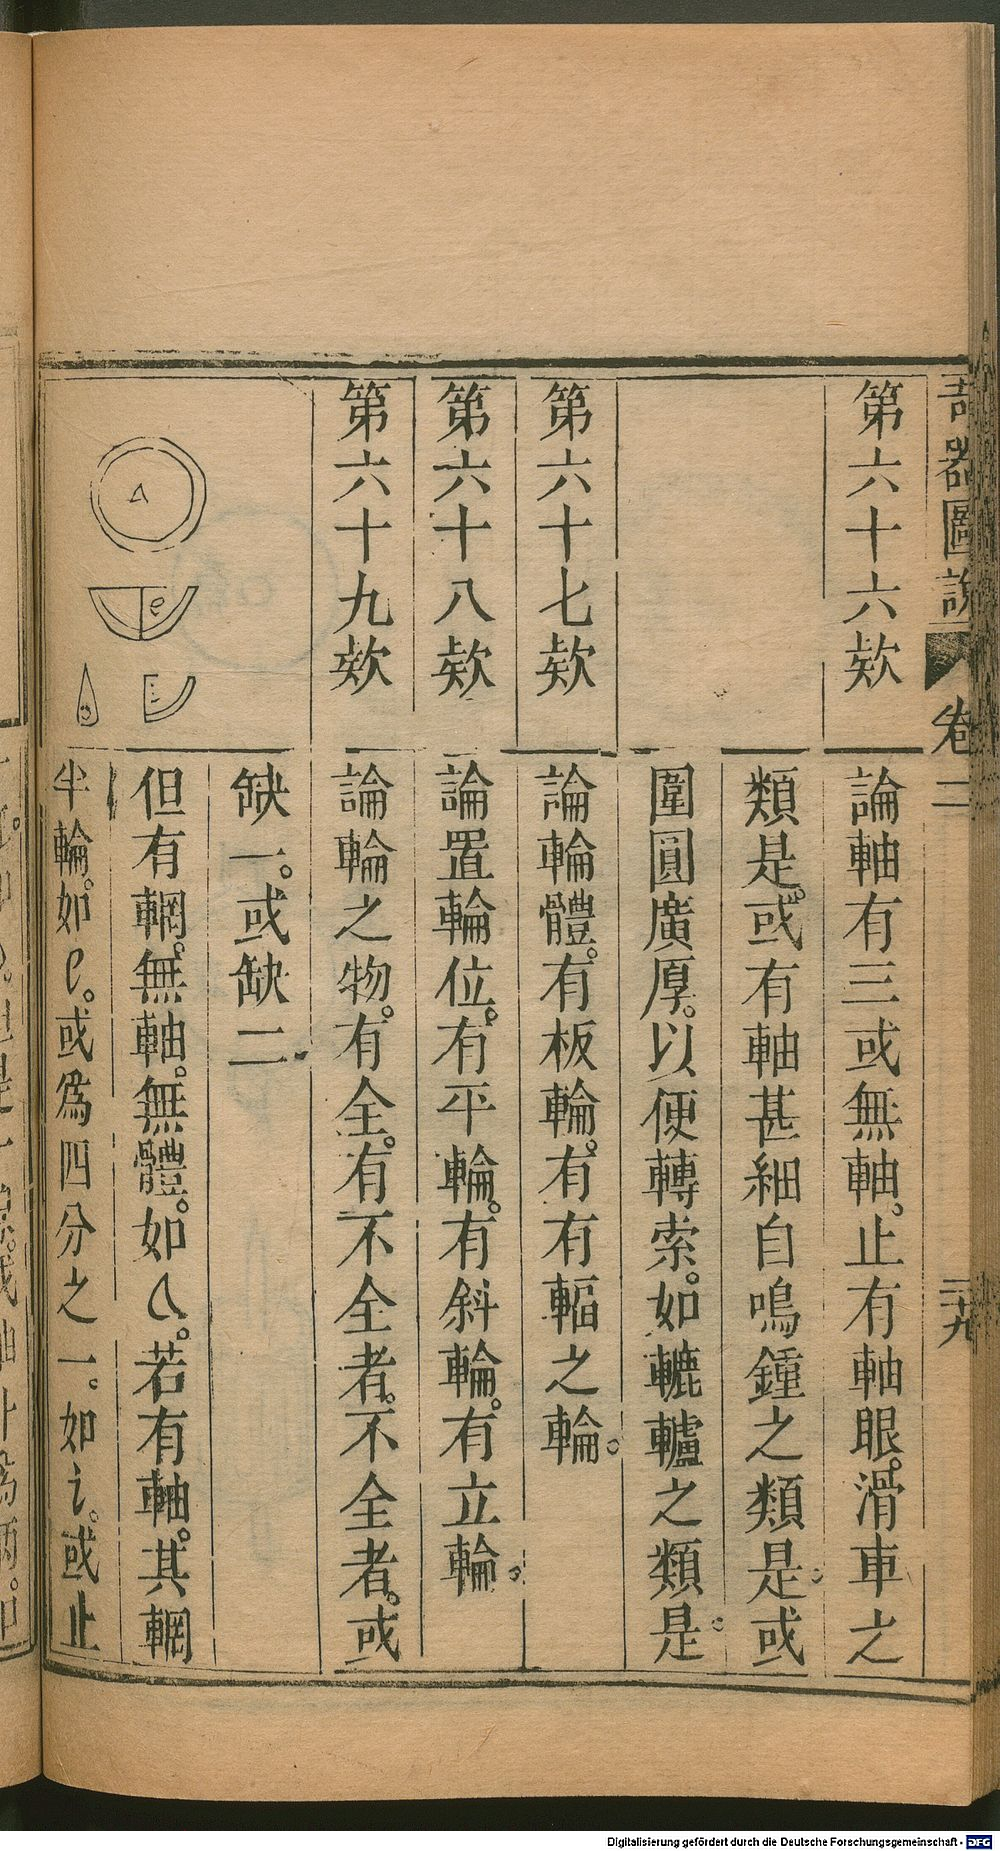 奇器圖說 卷二 二十九
第六十六欵
論軸有三或無軸。止有軸眼。滑車之
類是。或有軸甚細自鳴鐘之類是。或
圍圓廣厚。以便轉索。如轆轤之類是。
第六十七欵
論輪體。有板輪。有有輻之輪。
第六十八欵
論置輪位。有平輪。有斜輪。有立輪。
第六十九欵
論輪之物。有全。有不全者。不全者。或
缺一。或缺二
但有輞。無軸。無體。如。若有軸。其輞
半輪。如。或爲四分之一。如。或止
Digitalisierung gefördert durch die Deutsche Forschungsgemeinschaft - DFG